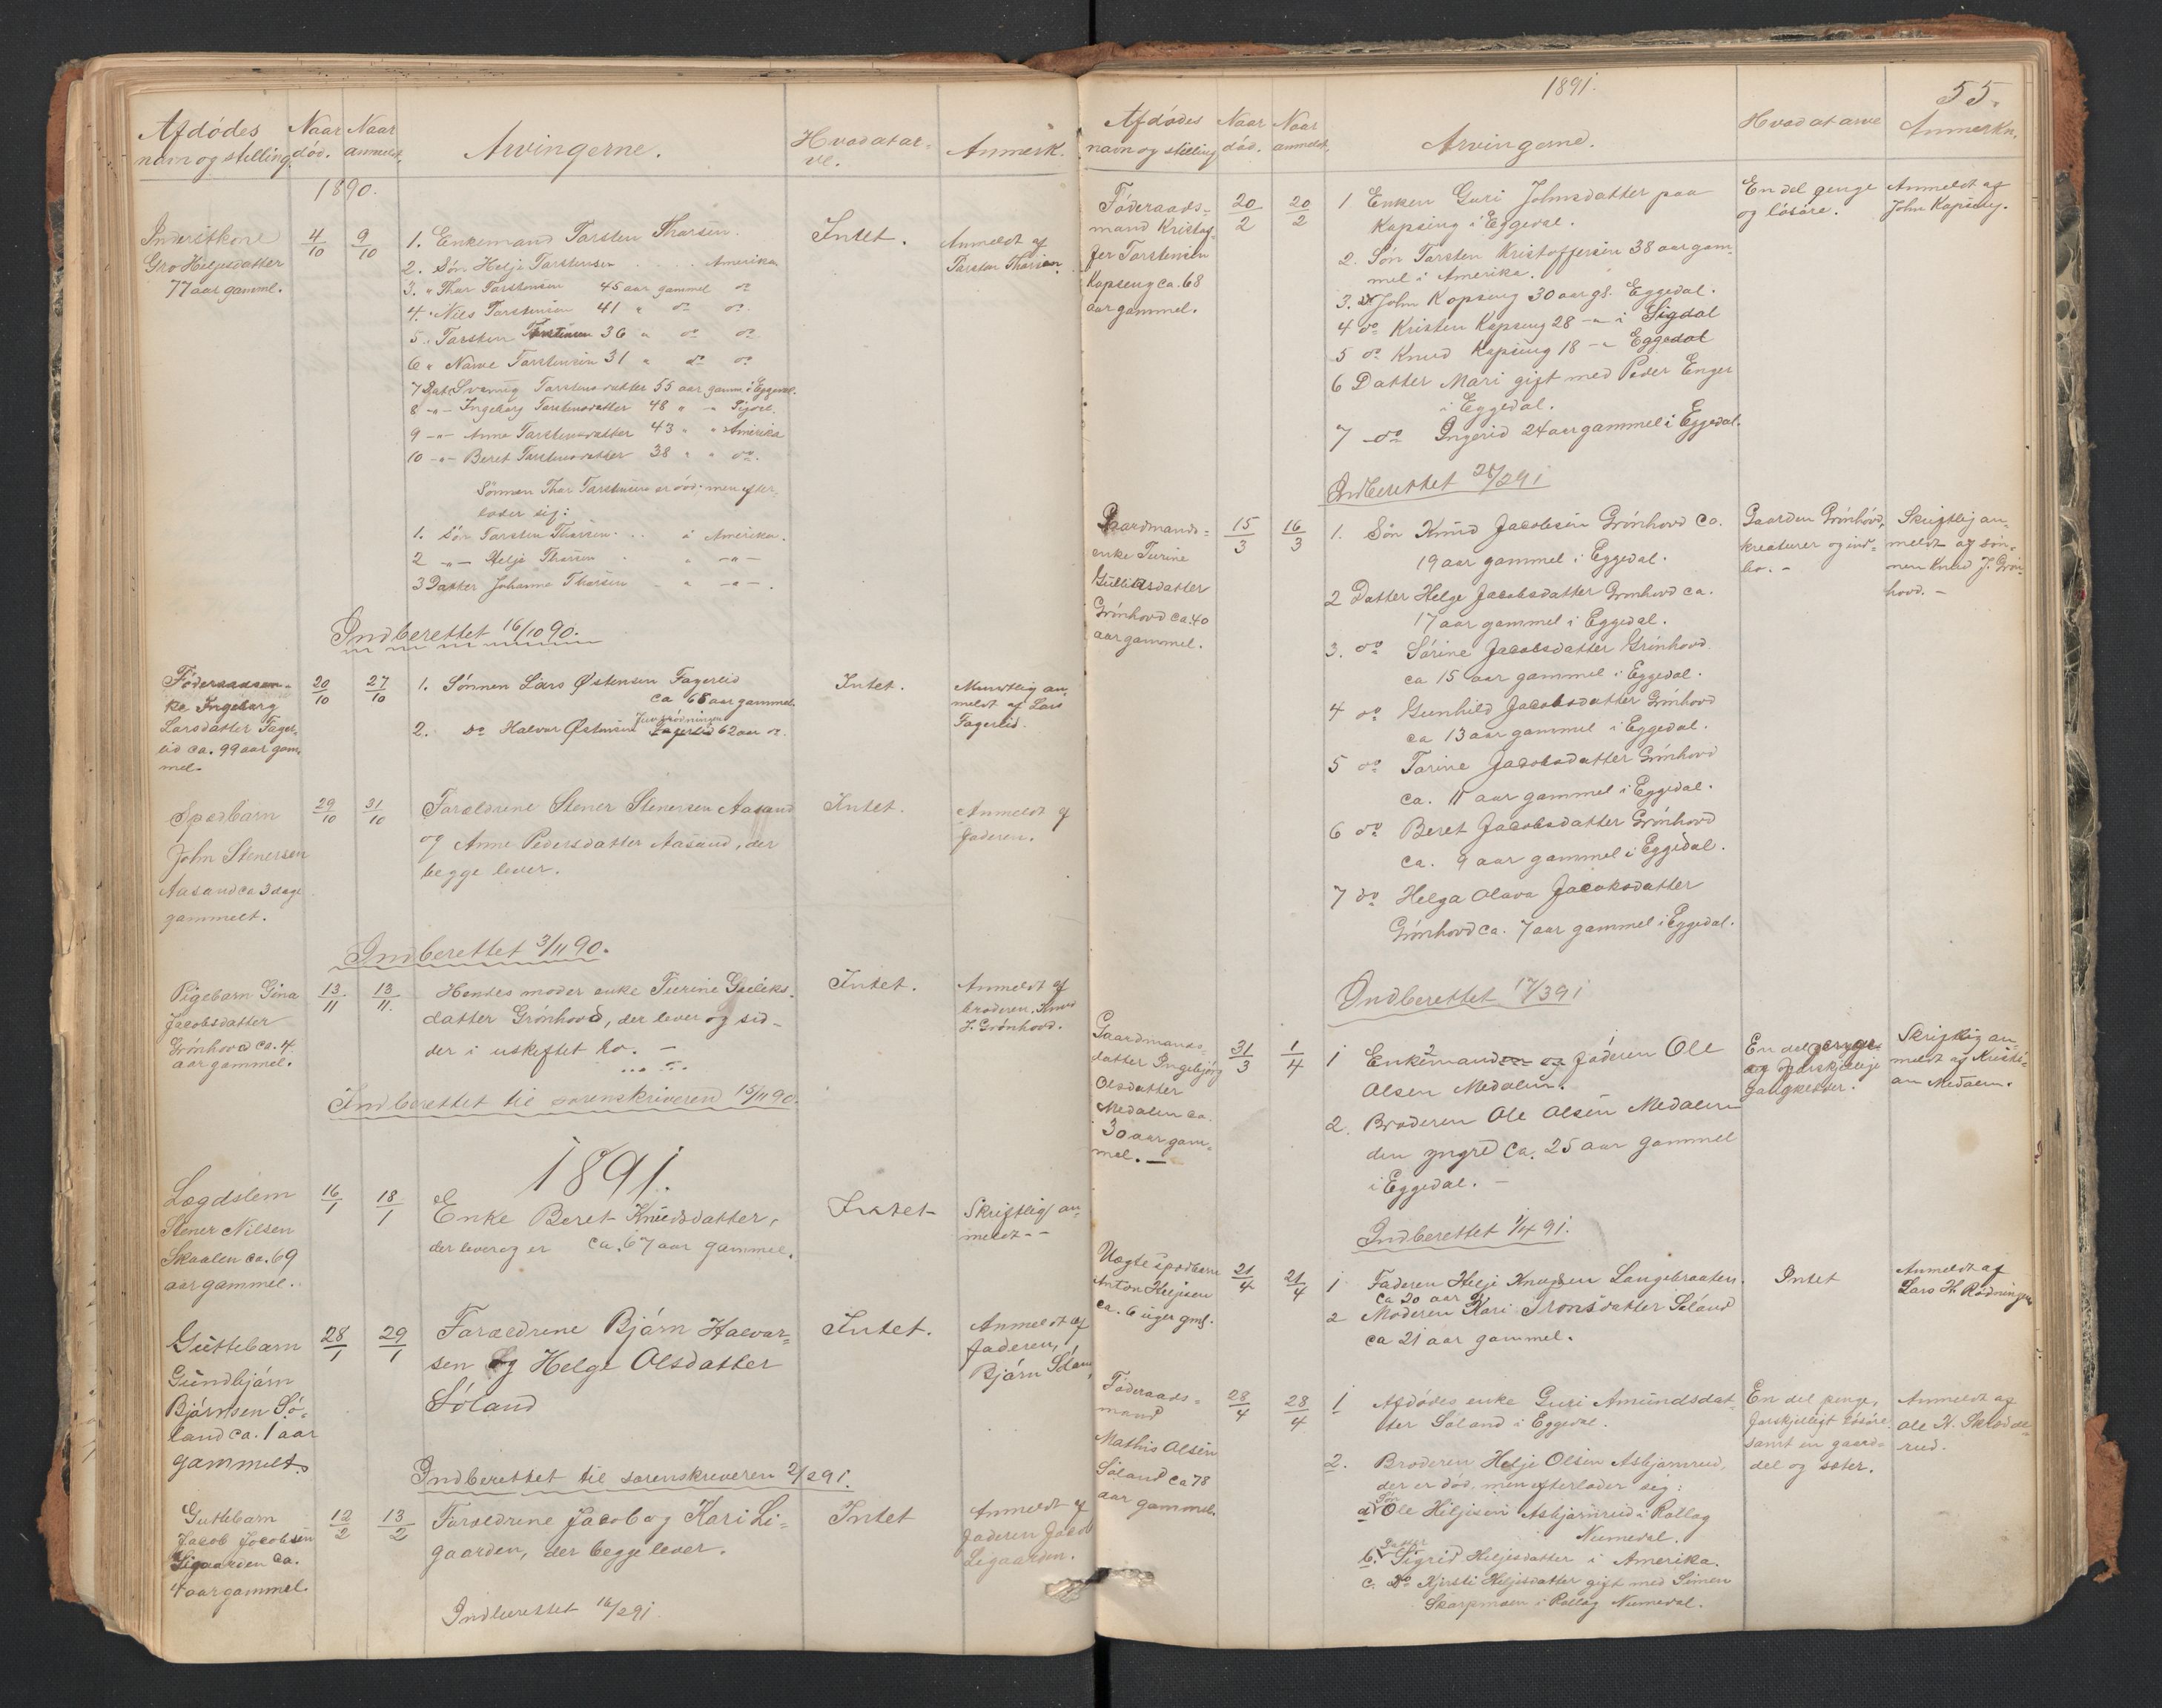 Afdödes
navn og stilling.
Naar
död.
Naar
anmeldt.
Arvingerne.
Hvad at ar-
ve.
Anmerk.
1890.
Inderstkone
Gro Heljesdatter
77 aar gamml.
4/10
9/10
1. Enkemand Torsten Thorsen.
2. Sön Helje Torstensen Amerika
3. " Thor Torstensen 45 aar gammel do
4. " Nils Torstensen 41 " do do
5. " Torsten Torstensen 36 " do do
6 " Narve Torstensen 31 " do do
7 Dat. Svanaug Torstensdatter 55 aar gamm. i Eggedal.
8 -"- Ingeborg Torstensdatter 48 " - Sigdal.
9 -"- Anne Torstensdatter 43 " " Amerika
10 -"- Beret Torstensdatter 38 " " do.
Sönnen Thor Torstensen er död, men efter-
lader sig:
1. Sön Torsten Thorsen. . . i Amerika.
2 -"- Helje Thorsen . " -"-
3 Datter Johanna Thorsen - " -"- .
Intet.
Anmeldt af
Torsten Thorsen.
Indberettet 16/10 90.
Föderaadsen-
ke Ingeborg
Larsdatter Fager-
lid ca. 99 aar gam-
mel.
20/10
27/10
1. Sönnen Lars Østensen Fagerlid
ca 65 aar gammel.
2. Do Halvor Østensen Fagerlid 62 aar do.
Intet.
Mundtlig an-
meldt af Lars
Fagerlid.
Spædbarn
John Stenersen
Aasand ca 3 dage
gammelt.
29/10
31/10
Foraldrene Stener Stenersen Aasand
og Anne Pedersdatter Aasand, der
begge lever.
Intet.
Anmeldt af
faderen.
Indberettet 3/11 90.
Pigebarn Gina
Jacobsdatter
Grönhovd ca. 4
aar gammel.
13/11
13/11.
Hendes moder enke Turine Gulleks-
datter Grönhovd, der lever og sid-
der i uskiftet bo. -
Intet.
Anmeldt af
broderen, Knud
J. Grönhovd.
Indberettet til sorenskriveren 15/11 90.
1891.
Lægdslem
Stener Nilsen
Skaalen ca. 69
aar gammel.
16/1
18/1
Enke Beret Knudsdatter,
der lever og er ca. 67 aar gammel.
Intet
Skriftlig an-
meldt. -
Guttebarn
Gundbjörn
Björnsen Sö-
land ca. 1 aar
gammelt.
28/1
29/1
Foraeldrene Björn Halvor-
sen og Helge Olsdatter
Söland
Intet.
Anmeldt af
faderen,
Björn Söland
Indberettet til sorenskriveren 2/2 91.
Guttebarn
Jacob Jacobsen
Ligaarden ca.
4 aar gammel.
12/2
13/2
Foraeldrene Jacob og Kari Li-
gaarden, der begge lever.
Intet
Anmeldt af
faderen Jacob
Ligaarden.
Indberettet 16/2 91.
1891.
55.
Afdödes
navn og stilling
Naar
död.
Naar
anmeldt.
Arvingerne.
Hvad at arve
Anmerkn.
Föderaads-
mand Kristof-
fer Torstensen
Kopseng ca. 68
aar gammel.
20/2
20/2
1 Enken Guri Johnsdatter paa
Kopseng i Eggedal.
2. Sön Torsten Kristoffersen 38 aar gam-
mel i Amerika.
3. do John Kopseng 30 aar gl. Eggedal.
4 do Kristen Kopseng 28 -"- i Sigdal
5 do Knud Kopseng 18 -"- Eggedal
6 Datter Mari gift med Peder Enger
i Eggedal.
7 -do Ingerid 24 aar gammel i Eggedal.
En del penge
og lösöre.
Anmeldt af
John Kopseng.
Indberettet 21/2 91
Gaardmands-
enke Turine
Gulliksdatter
Grönhovd ca. 40
aar gammel.
15/3
16/3
1. Sön Knud Jacobsen Grönhovd ca.
19 aar gammel i Eggedal.
2 Datter Helge Jacobsdatter Grönhovd ca.
17 aar gammel i Eggedal.
3. do Sörine Jacobsdatter Grönhovd
ca 15 aar gammel i Eggedal.
4 do Gunhild Jacobsdatter Grönhovd
ca 13 aar gammel i Eggedal.
5 do Torine Jacobsdatter Grönhovd
ca. 11 aar gammel i Eggedal.
6 do Beret Jacobsdatter Grönhovd
ca. 9 aar gammel i Eggedal.
7 do Helga Olava Jacobsdatter
Grönhovd ca. 7 aar gammel i Eggedal.
Gaarden Grönhovd,
kreaturer og ind-
bo. -
Skriftlig an-
meldt af sön-
nen Knud J. Grön-
hovd. -
Indberettet 17/3 91
Gaardmands-
datter Ingebjörg
Olsdatter
Medalen ca.
30 aar gam-
mel. -
31/3
1/4
1 Enkemand og faderen Ole
Olsen Medalen.
2. Broderen Ole Olsen Medalen
den yngre ca. 25 aar gammel
i Eggedal. -
En del penge
og forskjellige
gangklæder.
Skriftlig an-
meldt af Kristi-
an Medalen.
Indberettet 1/4 91.
Uægte spædbarn
Anton Heljesen
ca. 6 uger gml.
21/4
21/4
1 Faderen Helje Knudsen Langebraaten.
ca 20 aar gl.
2 Moderen Kari Tronsdatter Söland
ca 21 aar gammel.
Intet
Anmeldt af
Lars H. Rödningen
Föderaads-
mand
Mathis Olsen
Söland ca 78
aar gammel.
28/4
28/4
1 Afdödes enke Guri Amundsdat-
ter Söland i Eggedal.
2. Broderen Helje Olsen Asbjörnrud,
der er död, men efterlader sig:
a. Sön Ole Heljesen Asbjörnrud i Rollag
Numedal.
b. Datter Sigrid Heljesdatter i Amerika.
c. Do Kjersti Heljesdatter gift med Simen
Skarpmoen i Rollag Numedal.
En del penge,
forskjelligt lösöre
samt en gaard-
del og sæter.
Anmeldt af
Ole K.